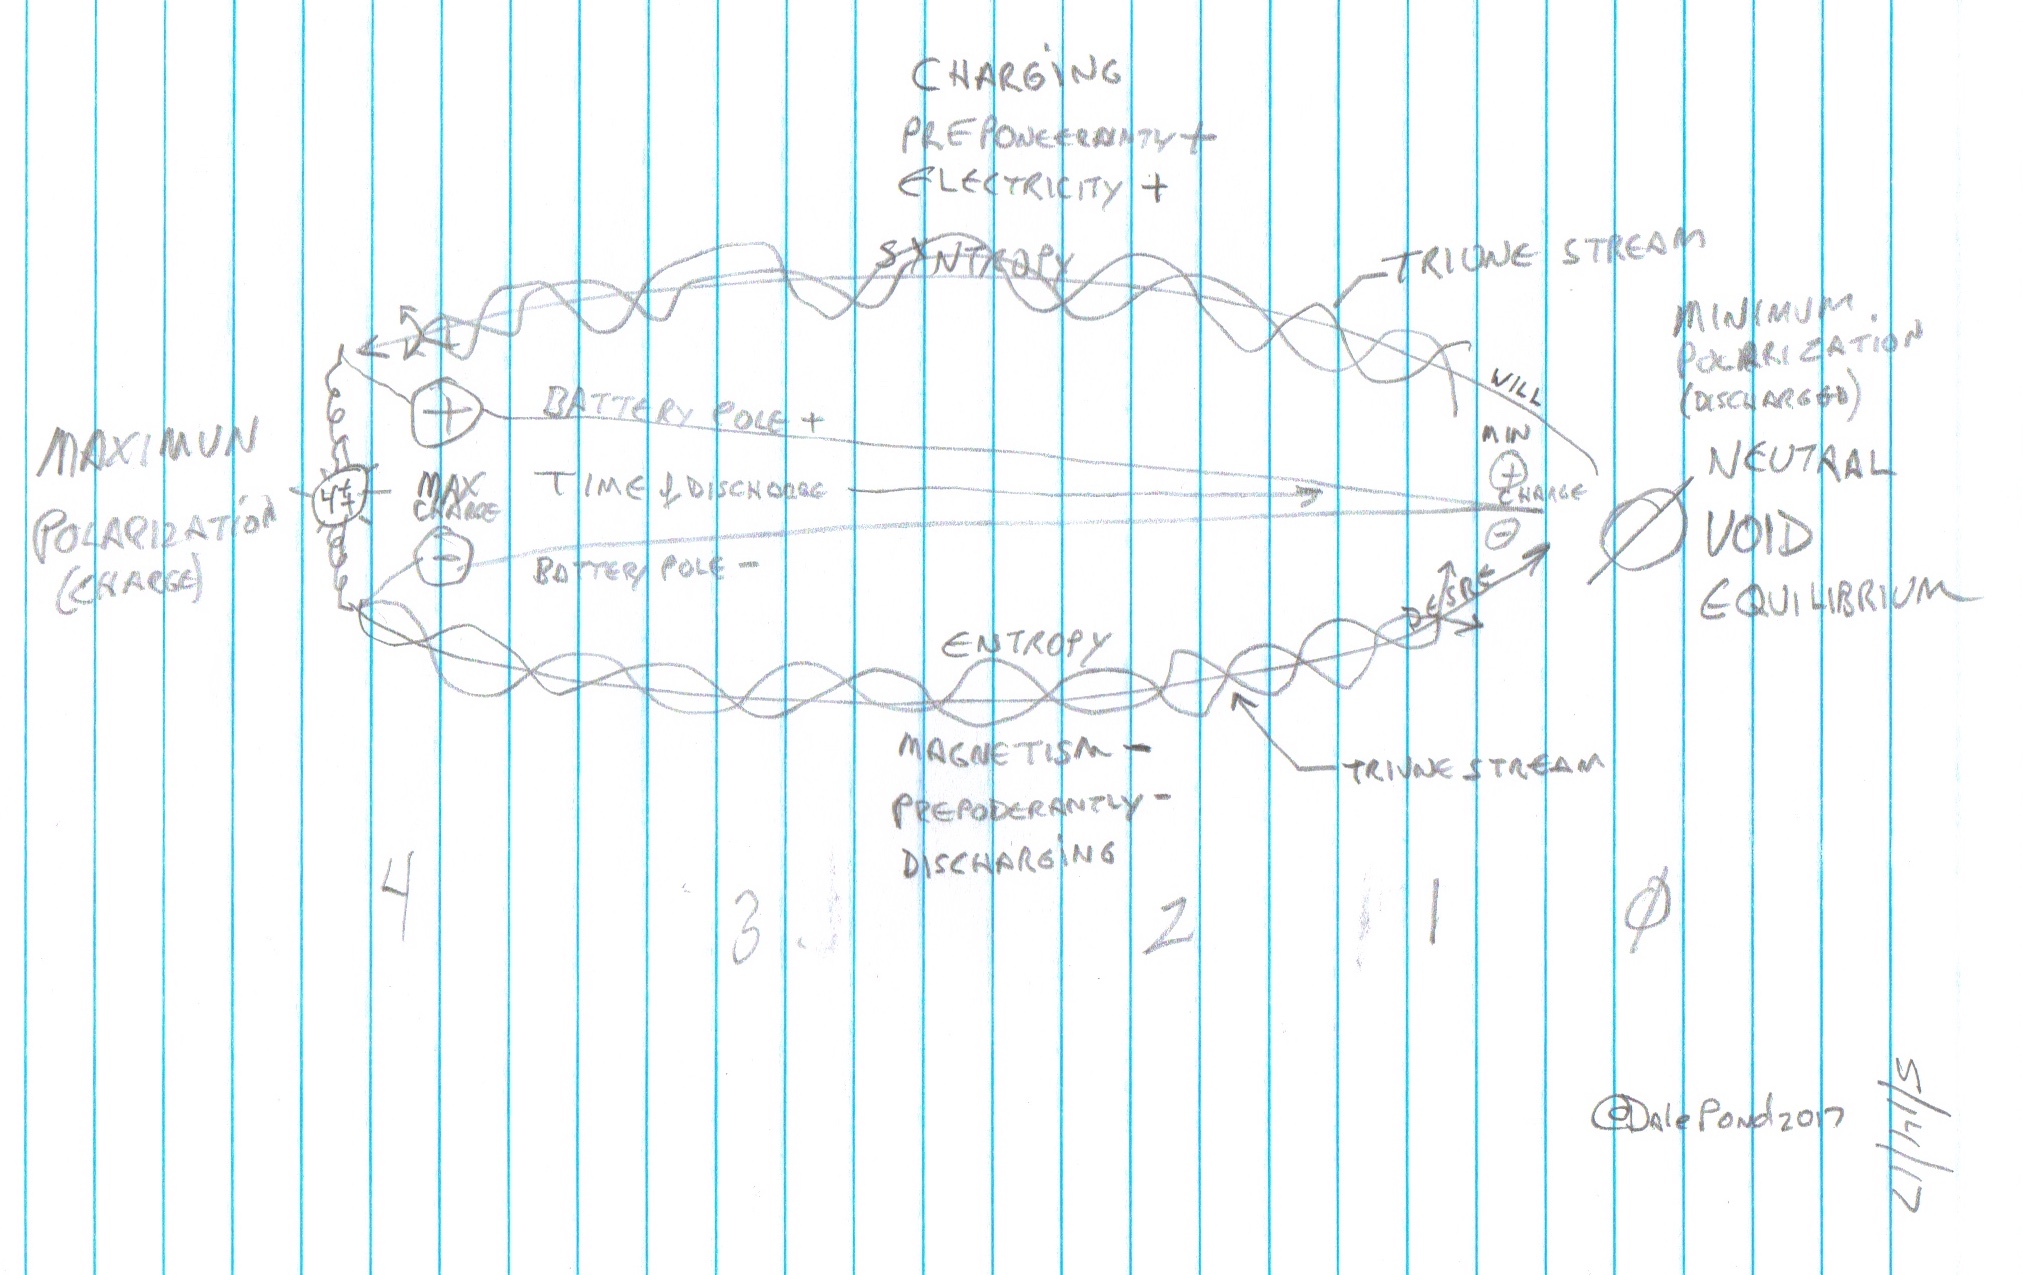 CHARGING
PREPONEERANTLY +
ELECTRICITY +
SYNTROPY
TRIUNE STREAM
MINIMUM
POLARIZATION
(DISCHARGED)
WILL
NEUTRAL
VOID
EQUILIBRIUM
MAXIMUN
POLARIZATION
(CHARGE)
+
BATTERY POLE +
MIN
+
CHARGE
-
4±
MAX
CHARGE
TIME & DISCHARGE
-
BATTERY POLE -
DESIRE
ENTROPY
MAGNETISM -
PREPODERANTLY -
DISCHARGING
TRIUNE STREAM
4
3
2
1
Ø
@Dale Pond 2017